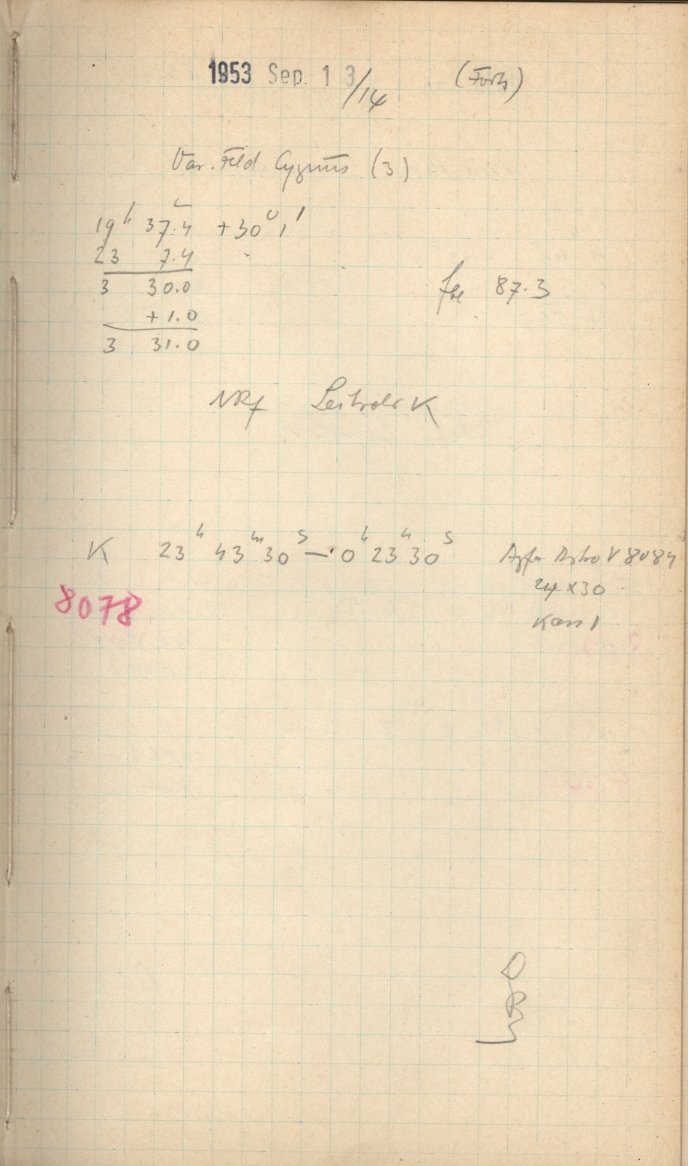 1953 Sep. 13/14 (Forts)
Var. Feld Cygnus (3)
19h 37.4 +30° 1'
23 7.4
3 30.0
+1.0
3 31.0
87.3
NRf Leitrohr K
K 23h 43m 30s — 0h 23 30s Agfa Astro V 8084
8078
24 x 30
Kass 1